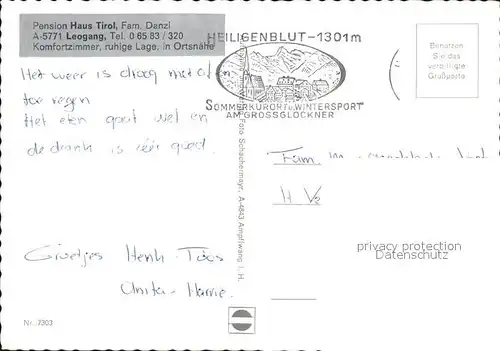 Pension Haus Tirol, Fam. Danzl
A-5771 Leogang, Tel. 0 65 83 / 320
Komfortzimmer, ruhige Lage, in Ortsnähe
HEILIGENBLUT-1301m
SOMMERKURORT u. WINTERSPORT
AM GROSSGLOCKNER
Benützen
Sie das
verbilligte
Grußporto
Het weer is droog met af en
toe regen
Het eten gaat wel en
de drank is goed.
Groetjes Henk-Toos
Anita-Harrie.
Foto Schachermayr, A-4843 Ampflwang i. H.
Fam.
privacy protection
Datenschutz
Nr. 7303